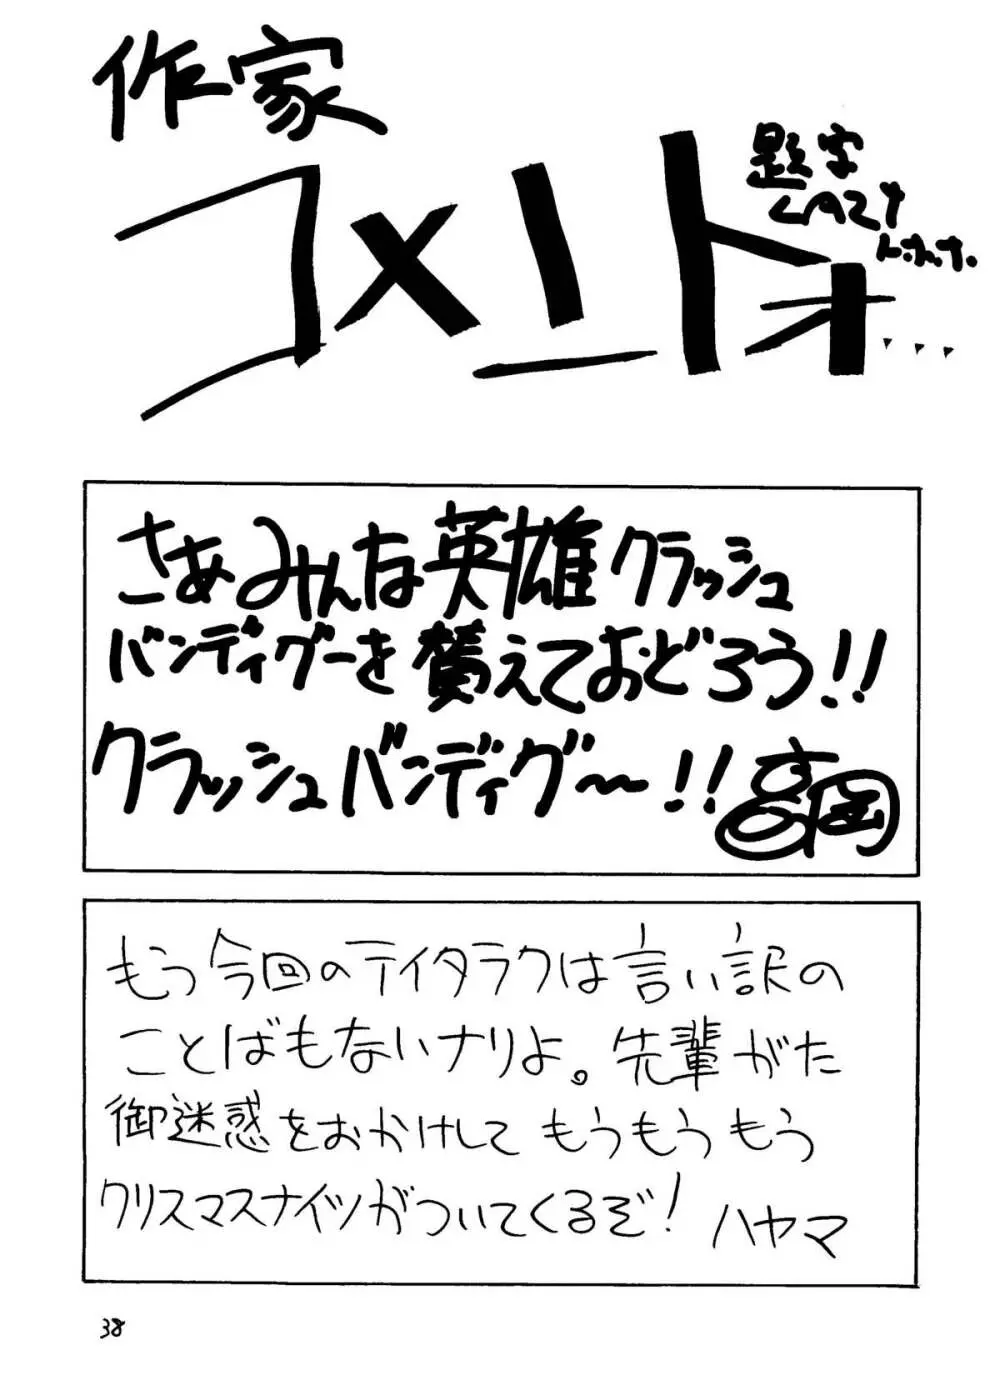 作家
コメント
題字
LAZY
トホホ.
さあみんな英雄クラッシュ
バンディグーを賛えておどろう!!
クラッシュバンディグ〜!!
高岡
もう今回のテイタラクは言い訳の
ことばもないナリよ。先輩がた
御迷惑をおかけして もうもうもう
クリスマスナイツがついてくるぞ!
ハヤマ
38